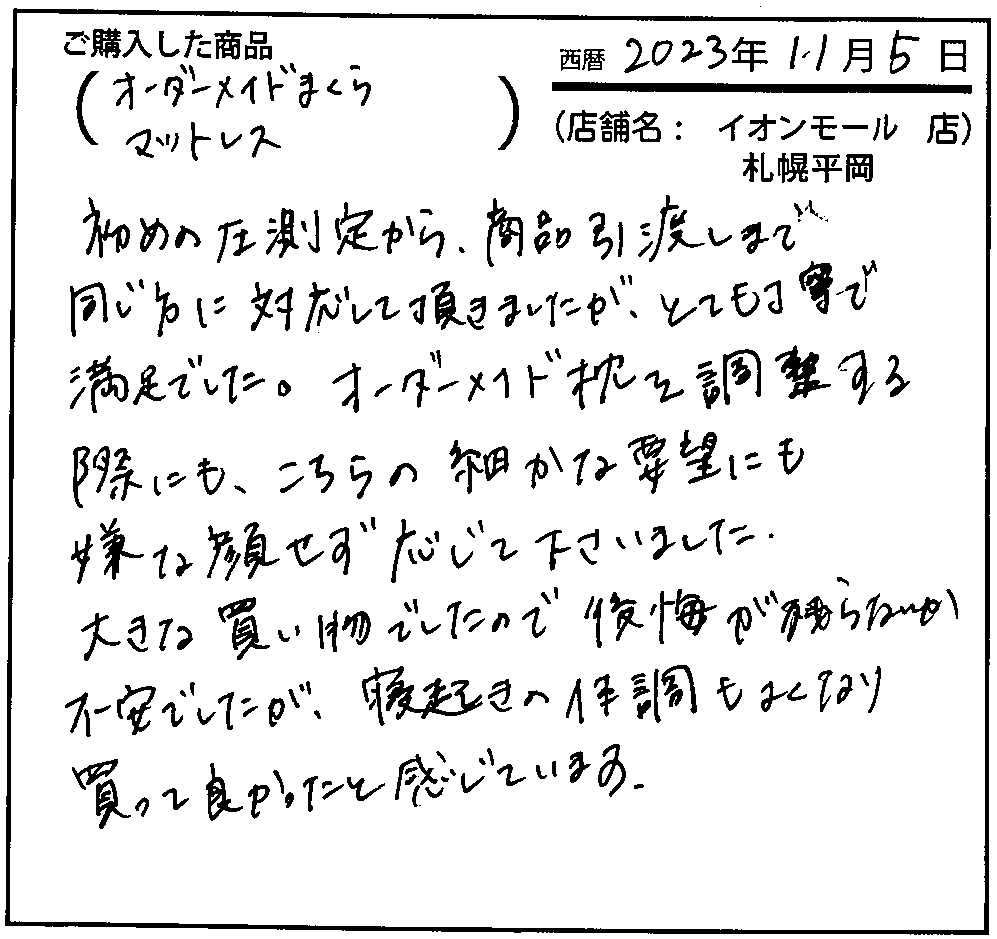 ご購入した商品
(オーダーメイドまくら
マットレス)
西暦 2023年 11月 5日
(店舗名: イオンモール 店)
札幌平岡
初めの圧測定から、商品引渡しまで
同じ方に対応して頂きましたが、とても丁寧で
満足でした。オーダーメイド枕を調整する
際にも、こちらの細かな要望にも
嫌な顔せず応じて下さいました.
大きな買い物でしたので後悔が残らないか
不安でしたが、寝起きの体調もよくなり
買って良かったと感じています.